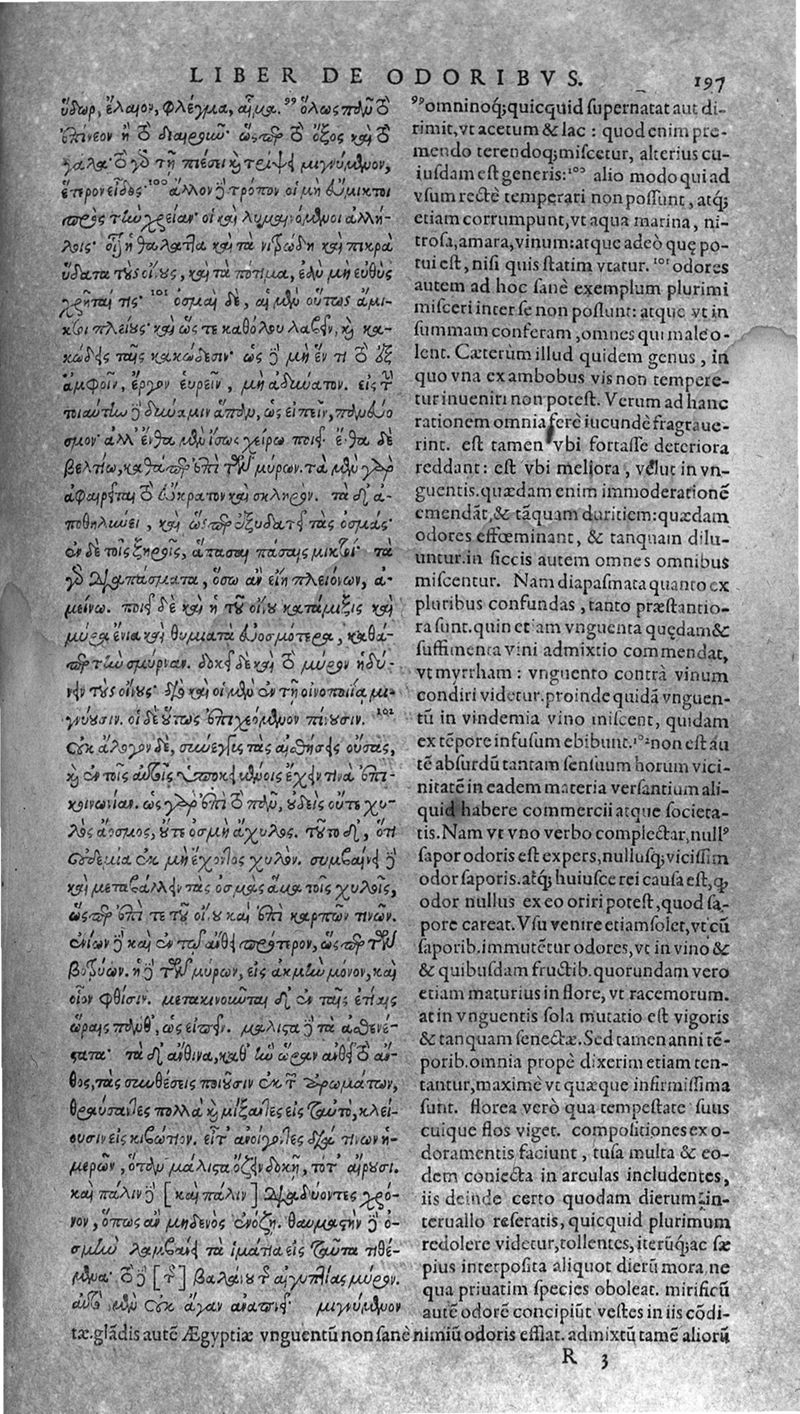 LIBER DE ODORIBVS. 197
ὕδωρ, ἔλαιον, φλέγμα, αἷμα. 99 ὅλως πᾶν τὸ
ἐπίνεον ἢ τὸ διαιροῦν· ὥσπερ τὸ ὄξος καὶ τὸ
γάλα· τὸ γὰρ τῇ πιέσει καὶ τρίψει μιγνύμενον,
ἕτερον εἶδος· 100 ἄλλον δὲ τρόπον οἱ μὴ εὔμικτοι
πρὸς τὴν χρείαν· οἱ καὶ λυμαινόμενοι ἀλλή-
λοις· οἷον ἡ θάλαττα καὶ τὰ νιτρώδη καὶ πικρὰ
ὕδατα τοὺς οἴνους, καὶ τὰ πότιμα, ἐὰν μὴ εὐθὺς
χρῆταί τις· 101 ὀσμαὶ δὲ, αἱ μὲν οὕτως ἄμι-
κτοι πλείους· καὶ ὥς τε καθόλου λαβεῖν, καὶ κα-
κώδεις ταῖς κακώδεσιν· ὡς δὲ μὴ ἕν τι τὸ ἐξ
ἀμφοῖν, ἔργον εὑρεῖν, μὴ ἀδύνατον. εἰς τὴν
τοιαύτην δὲ δύναμιν ἅπαν, ὡς εἰπεῖν, πᾶν εὔο
σμον· ἀλλ' ἔνθα μὲν ἴσως χείρω ποιεῖ· ἔνθα δὲ
βελτίω, καθάπερ ἐπὶ τῶν μύρων. τὰ μὲν γὰρ
ἀφαιρεῖται τὸ εὔκρατον καὶ σκληρόν. τὰ δ' ἀ-
ποθηλύνει, καὶ ὥσπερ ἐξυδατεῖ τὰς ὀσμάς·
ἐν δὲ τοῖς ξηροῖς, ἅπασαι πάσαις μικταί· τὰ
γὰρ διαπάσματα, ὅσῳ ἂν εἴη πλειόνων, ἀ-
μείνω. ποιεῖ δὲ καὶ ἡ τοῦ οἴνου κατάμιξις καὶ
μύρα ἔνια καὶ θυμιατὰ εὐοσμότερα, καθά-
περ τὴν σμύρναν. δοκεῖ δὲ καὶ τὸ μύρον ἡδύ-
νειν τοὺς οἴνους· διὸ καὶ οἱ μὲν ἐν τῇ οἰνοποιίᾳ μι-
γνύουσιν. οἱ δὲ οὕτως ἐπιχεόμενον πίνουσιν. 102
Οὐκ ἄλογον δὲ, συνεγγὺς τὰς αἰσθήσεις οὔσας,
καὶ ἐν τοῖς αὐτοῖς ὑποκειμένοις ἔχειν τινὰ ἐπι-
κοινωνίαν. ὡς γὰρ ἐπὶ τὸ πᾶν, οὐδεὶς οὔτε χυ-
λὸς ἄοσμος, οὔτε ὀσμὴ ἄχυλος. τοῦτο δ', ὅτι
οὐδεμία ἐκ μὴ ἔχοντος χυλόν. συμβαίνει δὲ
καὶ μεταβάλλειν τὰς ὀσμὰς ἅμα τοῖς χυλοῖς,
ὥσπερ ἐπί τε τοῦ οἴνου καὶ ἐπὶ καρπῶν τινῶν.
ἐνίων δὲ καὶ ἐν τῷ ἄνθει πρότερον, ὥσπερ τῶν
βοτρύων. ἡ δὲ τῶν μύρων, εἰς ἀκμὴν μόνον, καὶ
οἷον φθίσιν. μετακινοῦνται δ' ἐν ταῖς ἐτείαις
ὥραις πάνθ', ὡς εἰπεῖν. μάλιστα δὲ τὰ ἀσθενέ-
στατα· τὰ δ' ἄνθινα, καθ' ἣν ὥραν ἀνθεῖ τὸ ἄν-
θος, τὰς συνθέσεις ποιοῦσιν ἐκ τῶν ἀρωμάτων,
θραύσαντες πολλὰ καὶ μίξαντες εἰς ταὐτὸ, κλεί-
ουσιν εἰς κιβώτιον. εἶτ' ἀνοίγοντες διά τινων ἡ-
μερῶν, ὅταν μάλιστα ὄζειν δοκῇ, τότ' αἴρουσι.
καὶ πάλιν δὲ [καὶ πάλιν] διαδύοντες χρό-
νον, ὅπως ἂν μηδενὸς ἐνόζῃ. θαυμαστὴν δὲ ὀ-
σμὴν λαμβάνει τὰ ἱμάτια εἰς ταῦτα τιθέ-
μενα· τὸ δὲ [τῆς] βαλάνου τῆς αἰγυπτίας μύρον.
αὐτὸ μὲν οὐκ ἄγαν ἀνάπτει· μιγνύμενον
99omninoq́;quicquid supernatat aut di-
rimit, vt acetum & lac : quod enim pre-
mendo terendoq;miscetur, alterius cu-
iusdam est generis:100 alio modo qui ad
vsum rectè temperari non possunt, atq́;
etiam corrumpunt, vt aqua marina, ni-
trosa, amara, vinum:atque adeò quę po-
tui est, nisi quis statim vtatur. 101 odores
autem ad hoc sanè exemplum plurimi
misceri inter se non possunt: atque vt in
summam conferam, omnes qui male o-
lent. Cæterùm illud quidem genus, in
quo vna ex ambobus vis non tempere-
tur inueniri non potest. Verum ad hanc
rationem omnia ferè iucundè fragraue-
rint. est tamen vbi fortasse deteriora
reddant : est vbi meliora, velut in vn-
guentis.quædam enim immoderationē
emendāt, & tāquam duritiem:quædam
odores effœminant, & tanquam dilu-
untur.in siccis autem omnes omnibus
miscentur. Nam diapasmata quanto ex
pluribus confundas, tanto præstantio-
ra sunt.quin etiam vnguenta quędam&
suffimenta vini admixtio commendat,
vt myrrham : vnguento contrà vinum
condiri videtur.proinde quidā vnguen-
tū in vindemia vino miscent, quidam
ex tēpore infusum ebibunt.102 non est au
tē absurdū tantam sensuum horum vici-
nitatē in eadem materia versantium ali-
quid habere commercii atque societa-
tis. Nam vt vno verbo complectar, null⁹
sapor odoris est expers, nullusq́; vicissim
odor saporis. atq́; huiusce rei causa est, q̃
odor nullus ex eo oriri potest, quod sa-
pore careat. Vsu venire etiam solet, vt cū
saporib.immutētur odores, vt in vino &
& quibusdam fructib.quorundam vero
etiam maturius in flore, vt racemorum.
at in vnguentis sola mutatio est vigoris
& tanquam senectæ. Sed tamen anni tē-
porib.omnia propè dixerim etiam ten-
tantur, maximè vt quæque infirmissima
sunt. florea verò qua tempestate suus
cuique flos viget. compositiones ex o-
doramentis faciunt, tusa multa & eo-
dem coniecta in arculas includentes,
iis deinde certo quodam dierum in-
teruallo reseratis, quicquid plurimum
redolere videtur, tollentes, iterūq́; ac sæ
pius interposita aliquot dierū mora ne
qua priuatim species oboleat. mirificū
autē odorē concipiūt vestes in iis cōdi-
tæ.glādis autē Ægyptiæ vnguentū non sanè nimiū odoris efflat. admixtū tamē aliorū
R 3